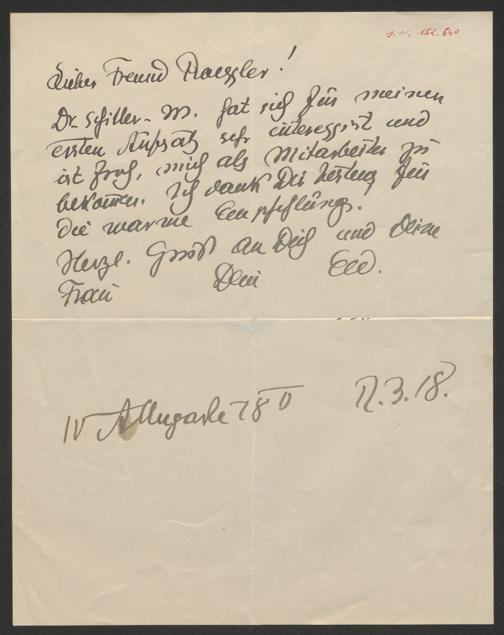 I. N. 152.640
Lieber Freund Raessler!
Dr. Schiller-M. hat sich für meinen
ersten Aufsatz sehr interessirt und
ist froh, mich als Mitarbeiter zu
bekommen. Ich dank Dir herzlich für
die warme Empfehlung.
Herzl. Gruß an Dich und Deine
Frau Dein
IV 78 II 12.3.18.